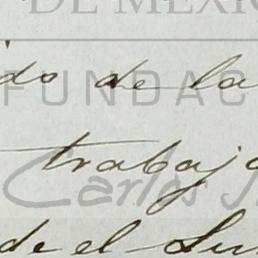 DE MÉXIC
ido de la
FUNDAC
trabajo
Carlos S
de el Su